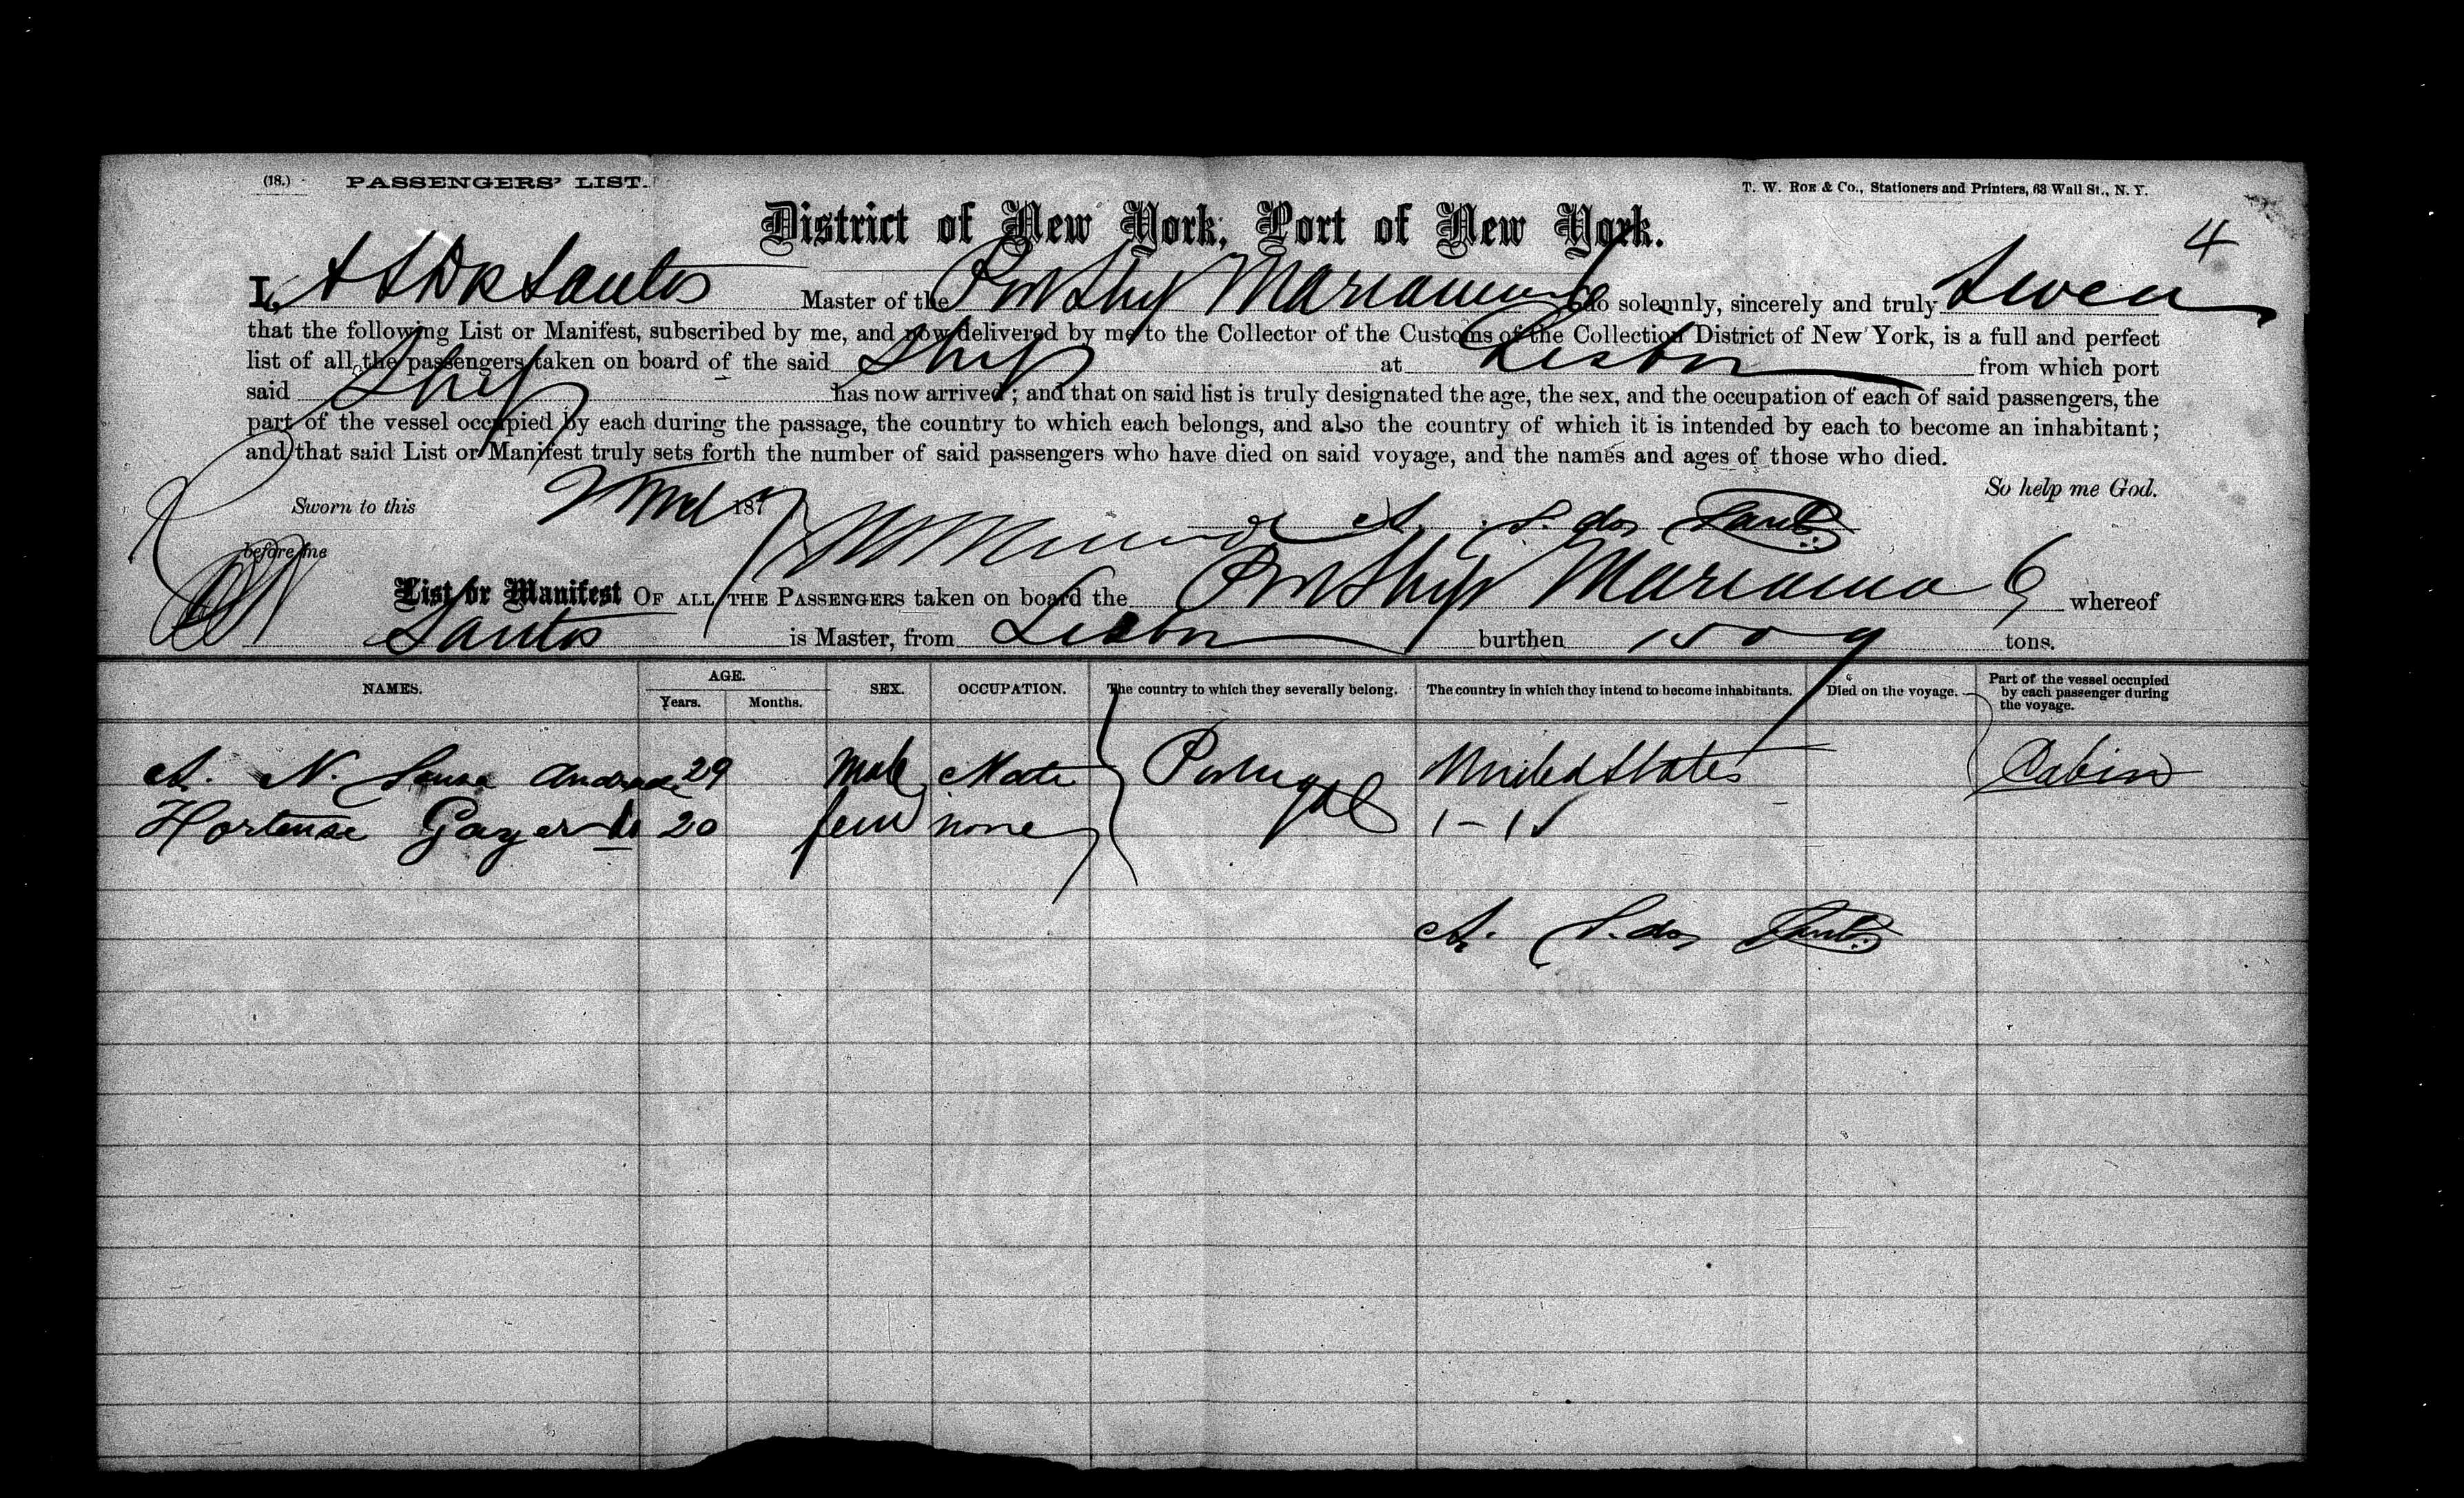 (18.) PASSENGERS' LIST. T. W. ROE & CO., Stationers and Printers, 63 Wall St., N. Y.
4
District of New York, Port of New York.
I, A S Dos Santos Master of the Ship Marianna do solemnly, sincerely and truly Swear
that the following List or Manifest, subscribed by me, and now delivered by me to the Collector of the Customs of the Collection District of New York, is a full and perfect
list of all the passengers taken on board of the said Ship at Lisbon from which port
said Ship has now arrived; and that on said list is truly designated the age, the sex, and the occupation of each of said passengers, the
part of the vessel occupied by each during the passage, the country to which each belongs, and also the country of which it is intended by each to become an inhabitant;
and that said List or Manifest truly sets forth the number of said passengers who have died on said voyage, and the names and ages of those who died.
So help me God.
Sworn to this 187 A. S. dos Santos
before me
List or Manifest OF ALL THE PASSENGERS taken on board the Ship Marianna whereof
Santos is Master, from Lisbon burthen 1509 tons.
NAMES. AGE. Years. Months. SEX. OCCUPATION. The country to which they severally belong. The country in which they intend to become inhabitants. Died on the voyage. Part of the vessel occupied by each passenger during the voyage.
A. N. Sousa Andrade 29 Male Mate Portugal United States Cabin
Hortense 20 fem none
A. S. dos Santos